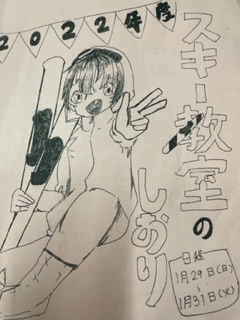 2022年度
スキー教室の
しおり
日程
1月29日(日)
~
1月31日(火)